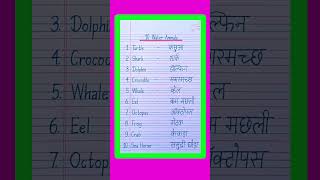 10 Water Animals
1. Turtle - कछुआ
2. Shark - शार्क
3. Dolphin - डॉल्फिन
4. Crocodile - मगरमच्छ
5. Whale - व्हेल
6. Eel - बाम मछली
7. Octopus - ऑक्टोपस
8. Frog - मेंढक
9. Crab - केकड़ा
10. Sea Horse - समुद्री घोड़ा
3. Dolphi ल्फिन
4. Croco रमच्छ
5. Whale ल
6. Eel म मछली
7. Octop क्टोपस